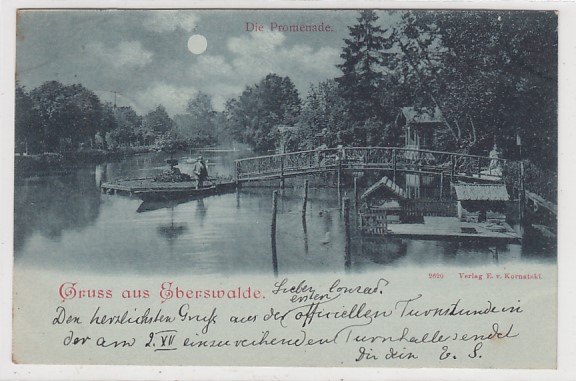 Die Promenade.
2620 Verlag E. v. Kornatzki.
Gruss aus Eberswalde.
Lieber Conrad!
ersten
Den herzlichsten Gruß aus der offiziellen Turnstunde in
der am 2. XII einzuweihenden Turnhalle sendet
Dir dein E. S.